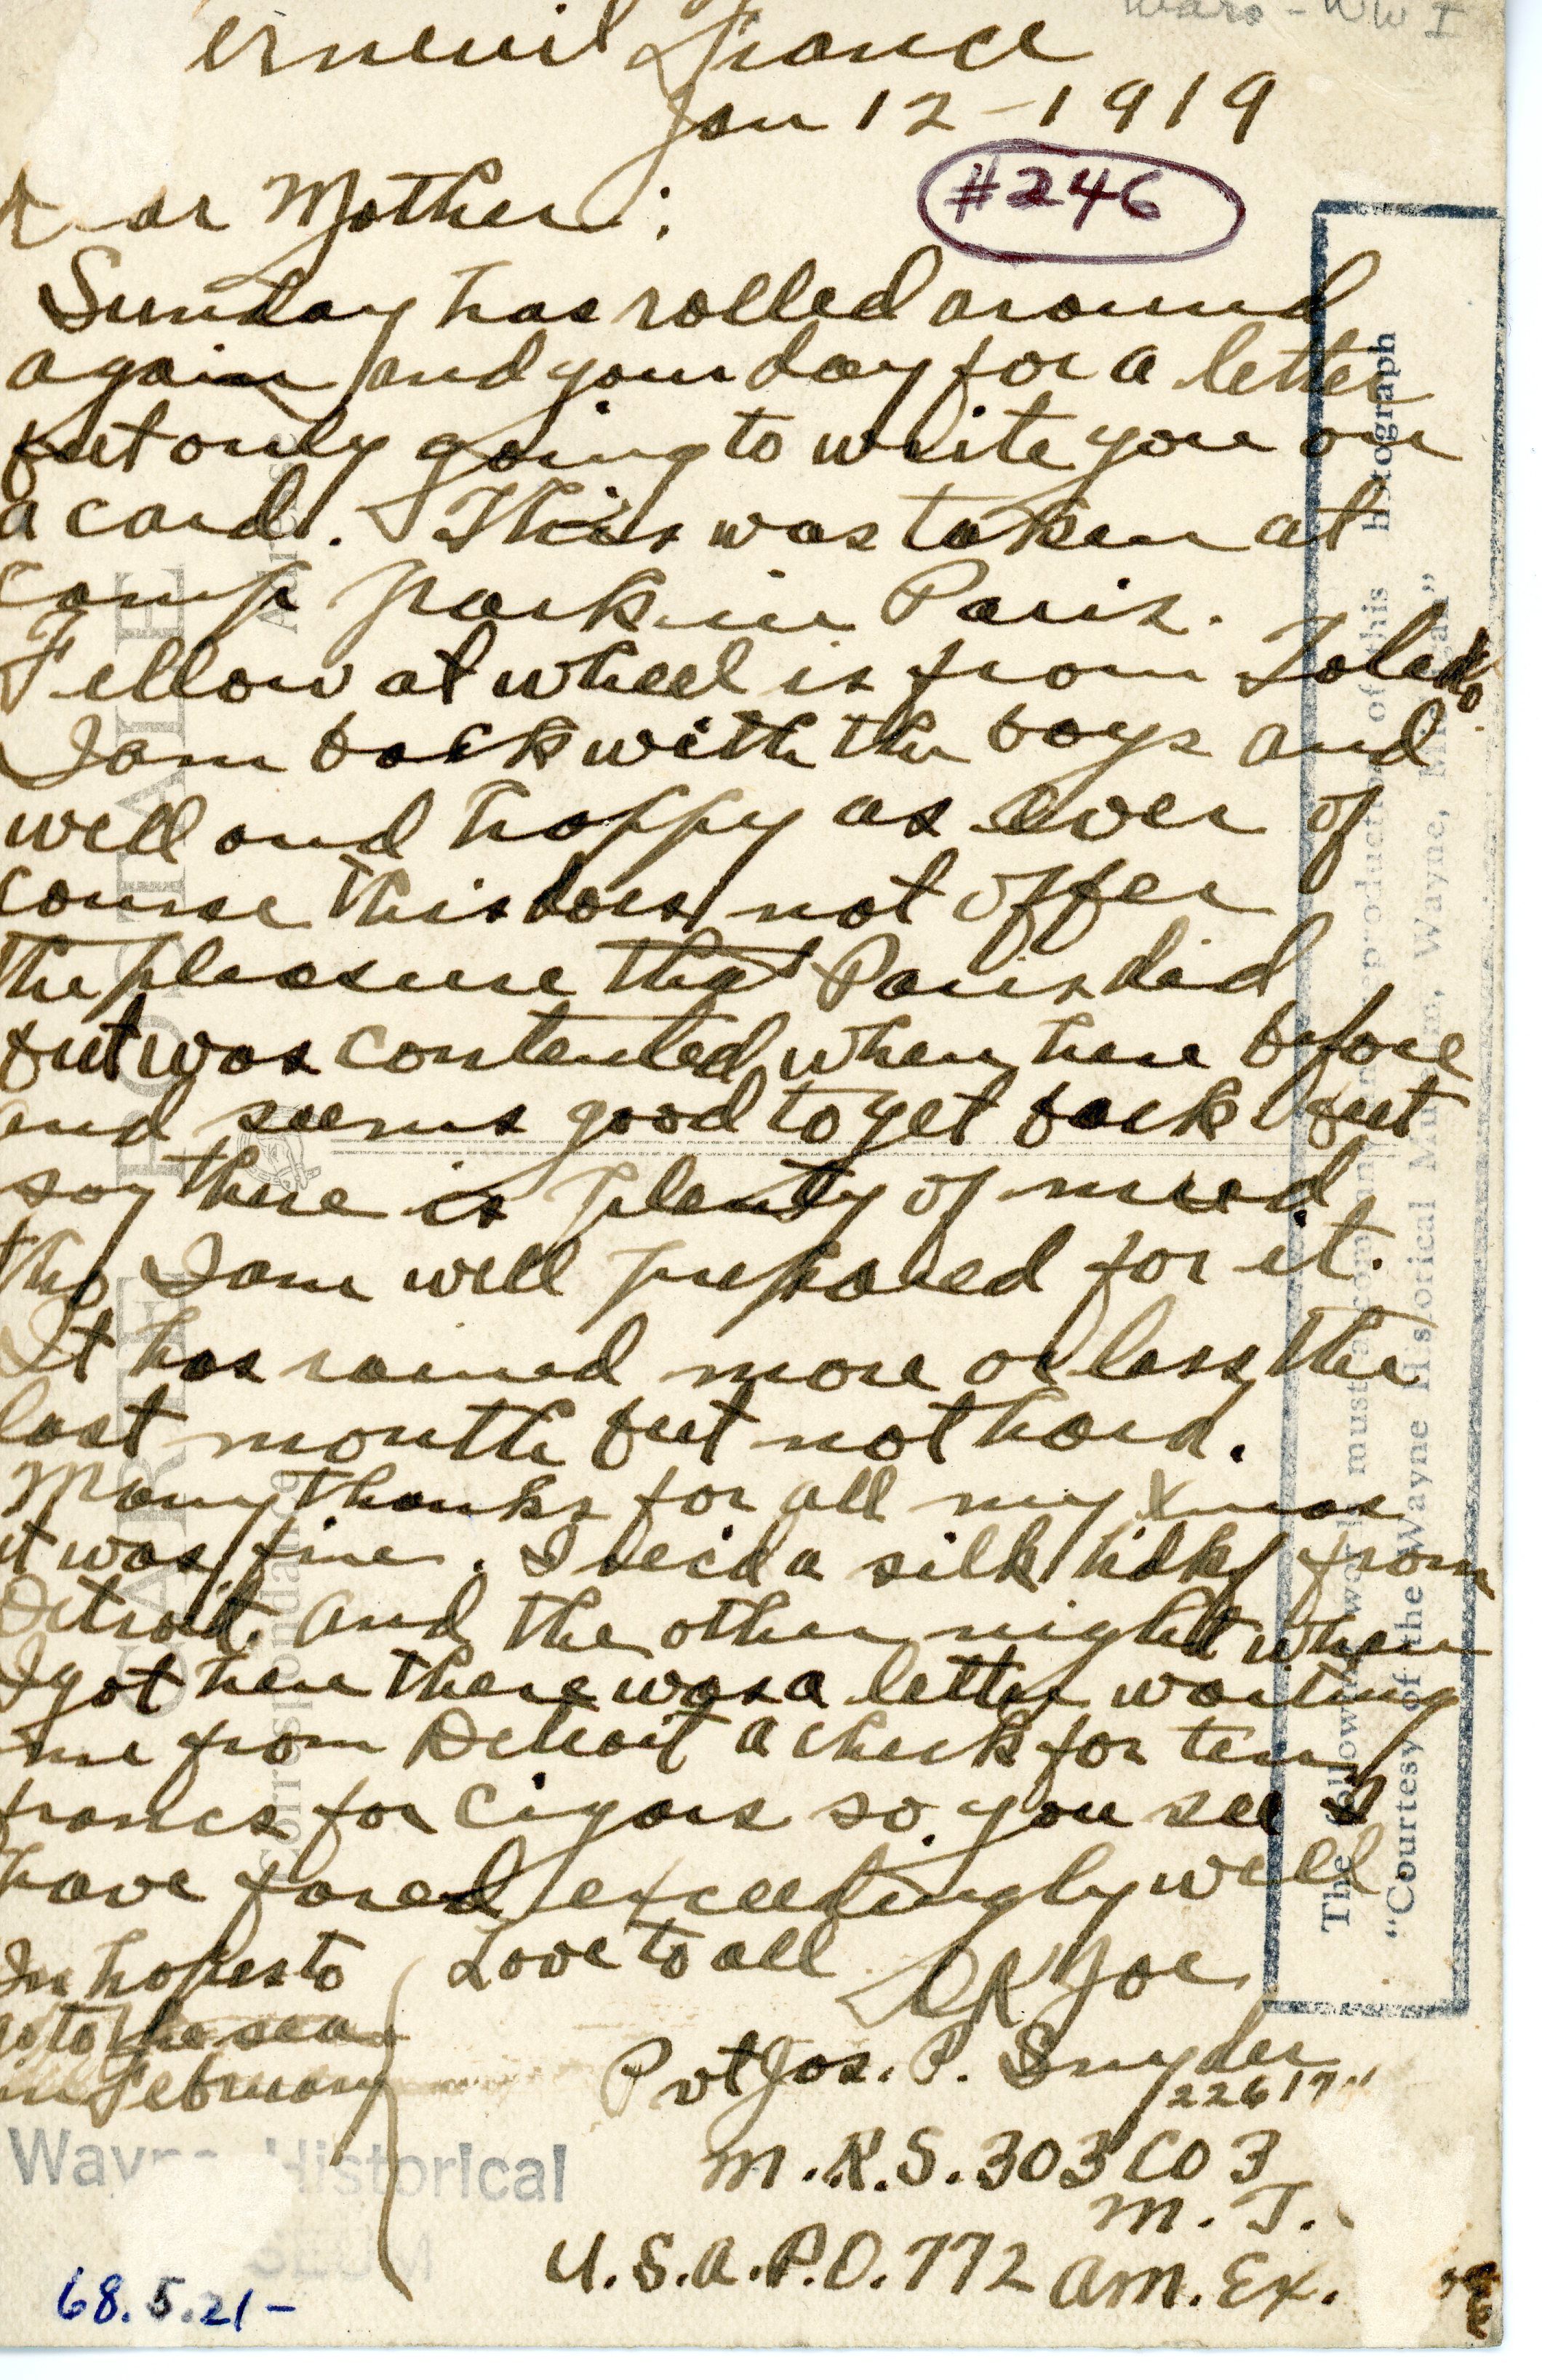 Wars - WW I
erneuil France
Jan 12 - 1919
#246
ear Mother:
Sunday has rolled around
again and your day for a letter
but only going to write you on
a card. This was taken at
Camp park in Paris.
Fellow at wheel is from Toledo
I am back with the boys and
well and happy as ever of
course this does not offer
the pleasure that Paris did
but was contented when here before
and seems good to get back but
say there is plenty of mud
tho I am well prepared for it.
It has rained more or less the
last month but not hard.
Many thanks for all my Xmas
it was fine. I recd a silk hdkf from
Detroit. And the other night when
I got here there was a letter waiting
me from Detroit a check for ten
francs for cigars so you see I
have fared exceedingly well
Love to all
In hopes to
go to the sea
in February
OK Joe
Pvt Jos. P. Snyder
22617
M.R.S. 303 CO 3
M. T.
U.S.A.P.O. 772 Am. Ex.
Wayne Historical
MUSEUM
68.5.21-
CARTE POSTALE
Correspondance
Adresse
The following words must accompany reproduction of this photograph
"Courtesy of the Wayne Historical Museum, Wayne, Michigan"